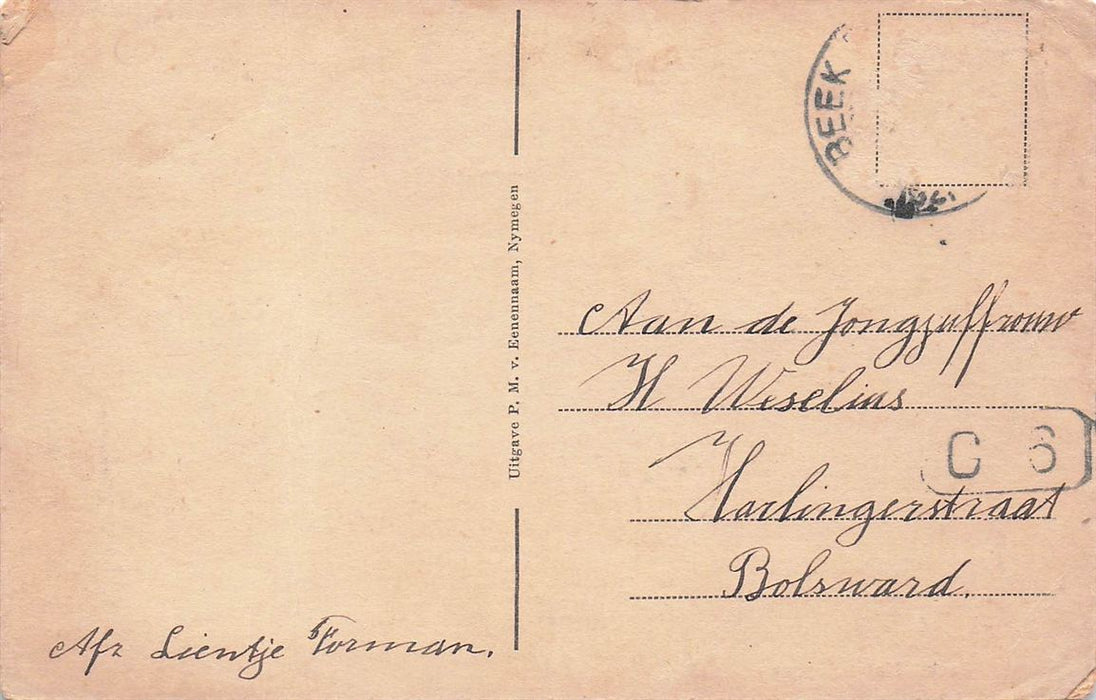 BEEK
Uitgave P. M. v. Eenennaam, Nymegen
Aan de Jongejuffrouw
H Weselius
C 6
Harlingerstraat
Bolsward.
Afz Lientje Forman.